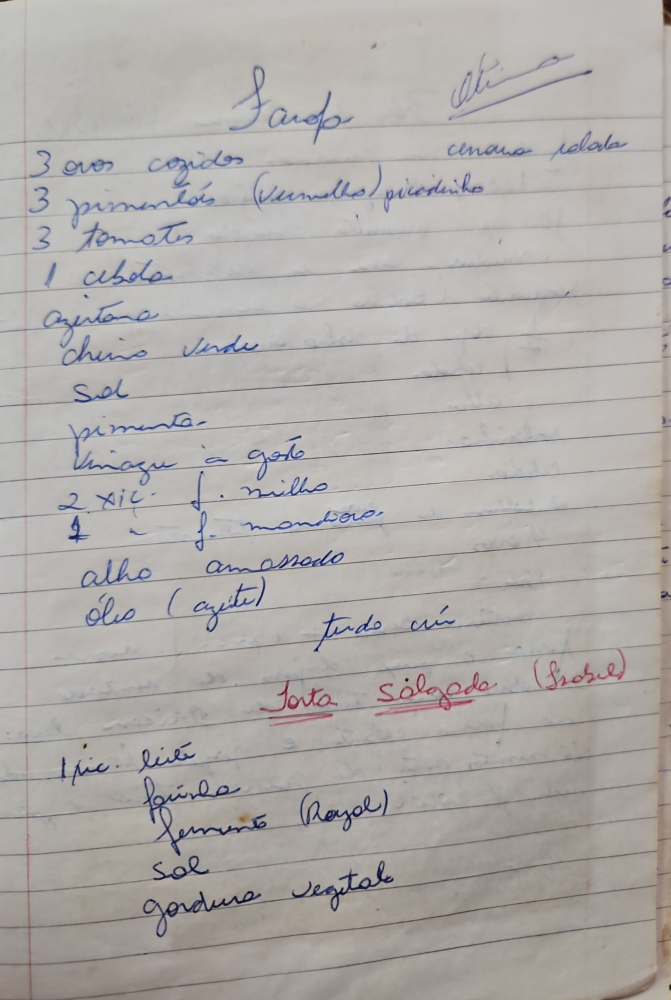 Farofa
Ótima
3 ovos cozidos
cenoura ralada
3 pimentões (vermelho) picadinho
3 tomates
1 cebola
azeitona
cheiro verde
sal
pimenta
vinagre à gosto
2 xíc. f. milho
1 " f. mandioca
alho amassado
óleo (azeite)
tudo crú
Torta Salgada (Isabel)
1 xic. leite
farinha
fermento (Royal)
sal
gordura vegetal